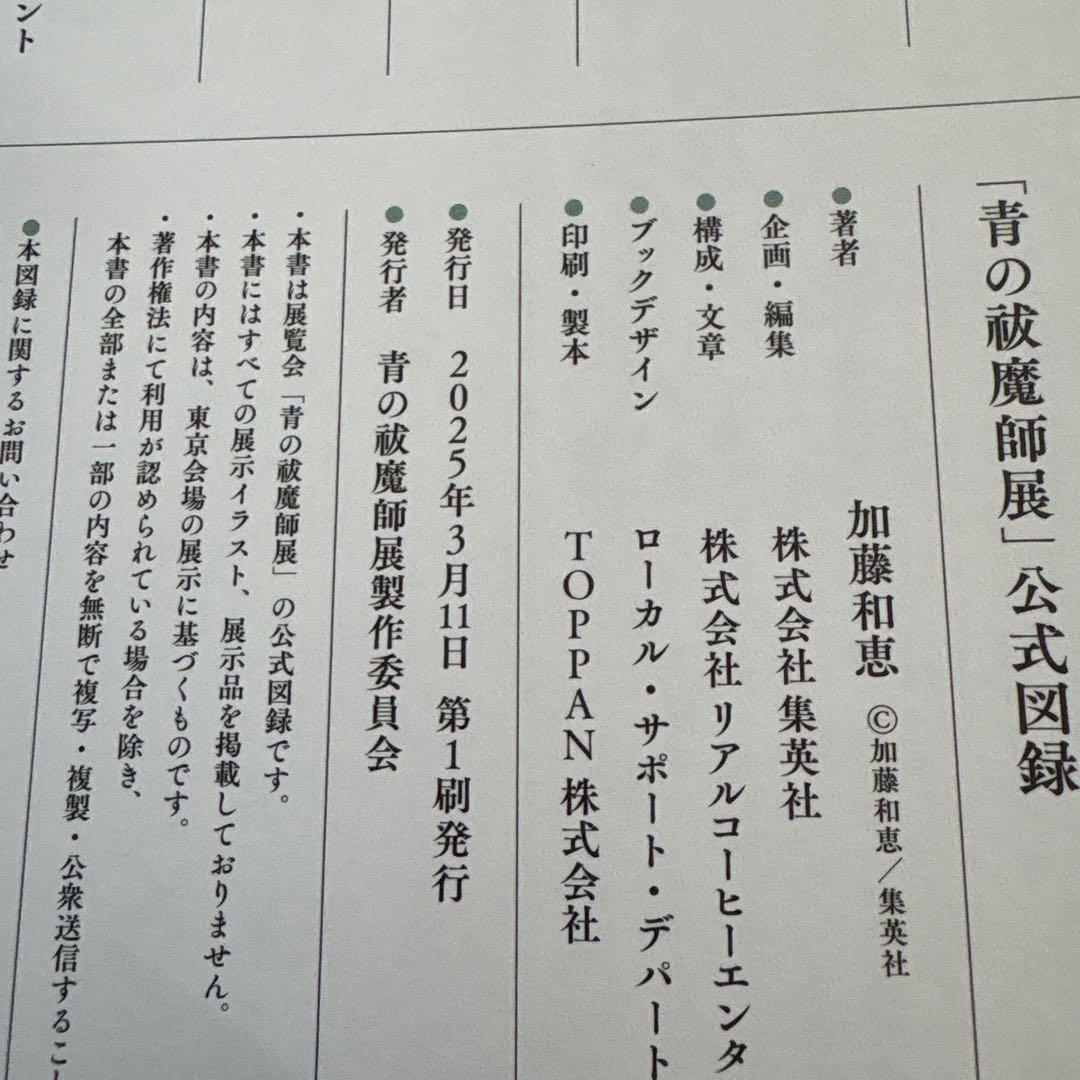 「青の祓魔師展」公式図録
●著者 加藤和恵 ©加藤和恵／集英社
●企画・編集 株式会社 集英社
●構成・文章 株式会社 リアルコーヒーエンタ
●ブックデザイン ローカル・サポート・デパート
●印刷・製本 TOPPAN 株式会社
●発行日 2025年3月11日 第1刷発行
●発行者 青の祓魔師展製作委員会
・本書は展覧会「青の祓魔師展」の公式図録です。
・本書にはすべての展示イラスト、展示品を掲載しておりません。
・本書の内容は、東京会場の展示に基づくものです。
・著作権法にて利用が認められている場合を除き、
本書の全部または一部の内容を無断で複写・複製・公衆送信するこ
●本図録に関するお問い合わせ
ント